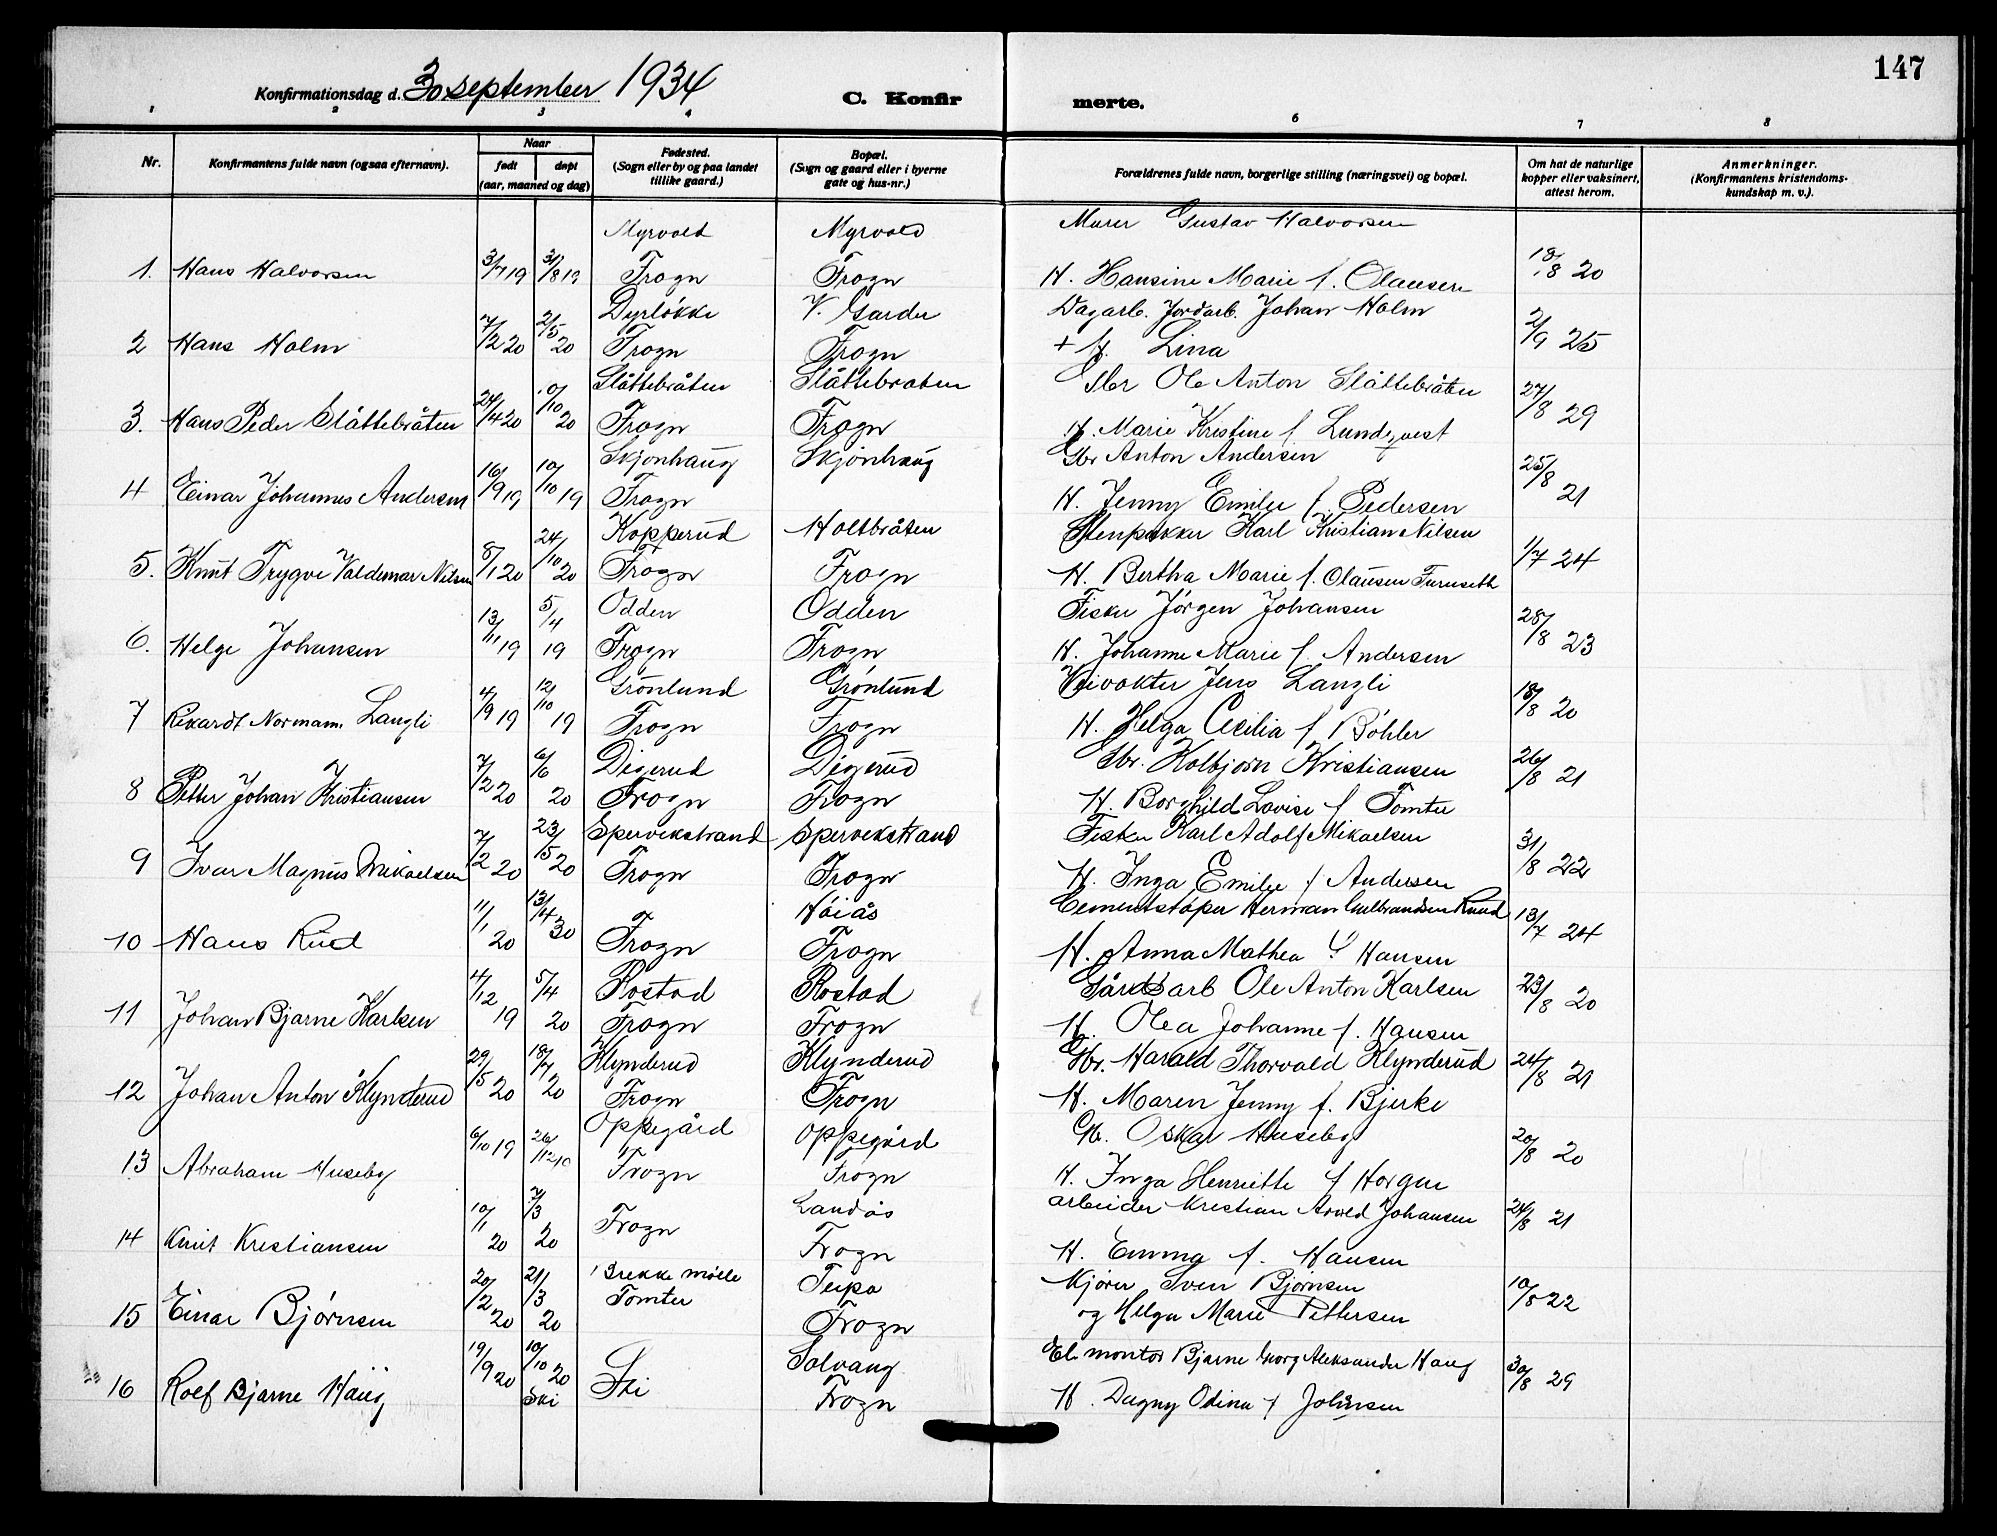 147
Konfirmationsdag d. 30 september 1934
C. Konfir merte.
1 2 3 4 6 7 8
Nr. Konfirmantens fulde navn (ogsaa efternavn). Naar født døpt (aar, maaned og dag) Fødested. (Sogn eller by og paa landet tillike gaard.) Bopæl. (Sogn og gaard eller i byerne gate og hus-nr.) Forældrenes fulde navn, borgerlige stilling (næringsvei) og bopæl. Om hat de naturlige kopper eller vaksinert, attest herom. Anmerkninger. (Konfirmantens kristendoms-kundskap m. v.).
Myrvold Myrvold Murer Gustav Halvorsen
1. Hans Halvorsen 3/7 19 31/8 19 Frogn Frogn H. Hansine Marie f. Olausen 18/8 20
Dyrløkke V. Garder Dagarb. Jordarb. Johan Holm
2 Hans Holm 7/2 20 2/5 20 Frogn Frogn + H. Lina 2/9 25
Slåttebråten Slåttebraten Gbr Ole Anton Slåttebråten
3. Hans Peder Slåttebråten 24/4 20 10/10 20 Frogn Frogn H. Marie Kristine f. Lundqvest 27/8 29
Skjønhaug Skjønhaug Gbr Anton Andersen
4 Einar Johannes Andersen 16/9 19 10/10 19 Frogn H. Jenny Emilie f. Pedersen 25/8 21
Kopperud Holtbråten Stenpukker Karl Kristian Nilsen
5. Knut Trygve Valdemar Nilsen 8/1 20 24/10 20 Frogn Frogn H. Bertha Marie f. Olausen Furuseth 1/7 24
Odden Odden Fisker Jørgen Johansen
6. Helge Johansen 13/11 19 5/4 19 Frogn Frogn H. Johanne Marie f. Andersen 28/8 23
Grønlund Grønlund Veivokter Jens Langli
7 Rikardt Normann Langli 4/9 19 12/10 19 Frogn Frogn H. Helga Cecilia f Bøhler 18/8 20
Digerud Digerud Gbr. Kolbjørn Kristiansen
8 Petter Johan Kristiansen 7/2 20 6/6 20 Frogn Frogn H. Borghild Lovise f Tomter 26/8 21
Spervekstrand Spervekstrand Fisker Karl Adolf Mikaelsen
9 Ivar Magnus Mikaelsen 7/2 20 23/5 20 Frogn Frogn H. Inga Emilie f Andersen 31/8 22
Høiås Cementstøper Herman Gulbrandsen Ruud
10 Hans Rud 11/1 20 13/4 30 Frogn Frogn H. Anna Mathea f Hansen 13/7 24
Rostad Rostad Gårdsarb Ole Anton Karlsen
11 Johan Bjarne Karlsen 4/12 19 5/4 20 Frogn Frogn H. Olea Johanne f. Hansen 23/8 20
Klynderud Klynderud Gbr. Harald Thorvald Klynderud
12 Johan Anton Klynderud 29/5 20 18/7 20 Frogn Frogn H. Maren Jenny f. Bjerke 24/8 21
Oppegård Oppegård Gb. Oskar Huseby
13 Abraham Huseby 6/10 19 26/12 19 Frogn Frogn H. Inga Henriette f Horgen 20/8 20
Landås arbeider Kristian Arvid Johansen
14 Knut Kristiansen 10/1 20 7/3 20 Frogn Frogn H. Emma f. Hansen 24/8 21
Brekke mølle Teipa Kjører Sven Bjørnsen
15 Einar Bjørnsen 20/2 20 21/3 20 Tomter Frogn og Helga Marie Pettersen 10/8 22
Solvang El. montør Bjarne Georg Aleksander Haug
16 Rolf Bjarne Haug 19/9 20 10/10 20 Ski Ski Frogn H. Dagny Odina f Johnsen 30/8 29